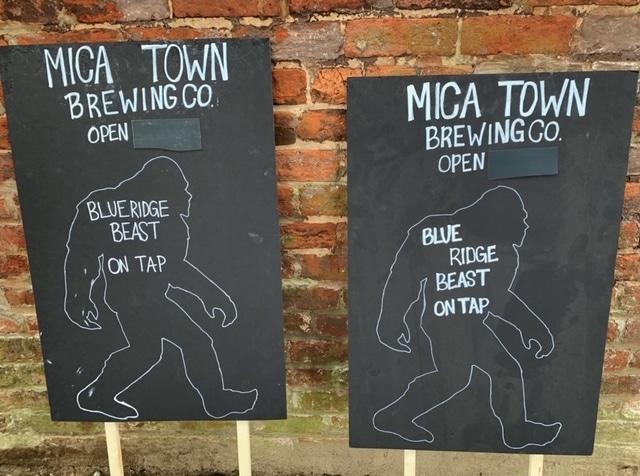 MICA TOWN
BREWING CO.
OPEN
BLUE RIDGE
BEAST
ON TAP
MICA TOWN
BREWING CO.
OPEN
BLUE
RIDGE
BEAST
ON TAP